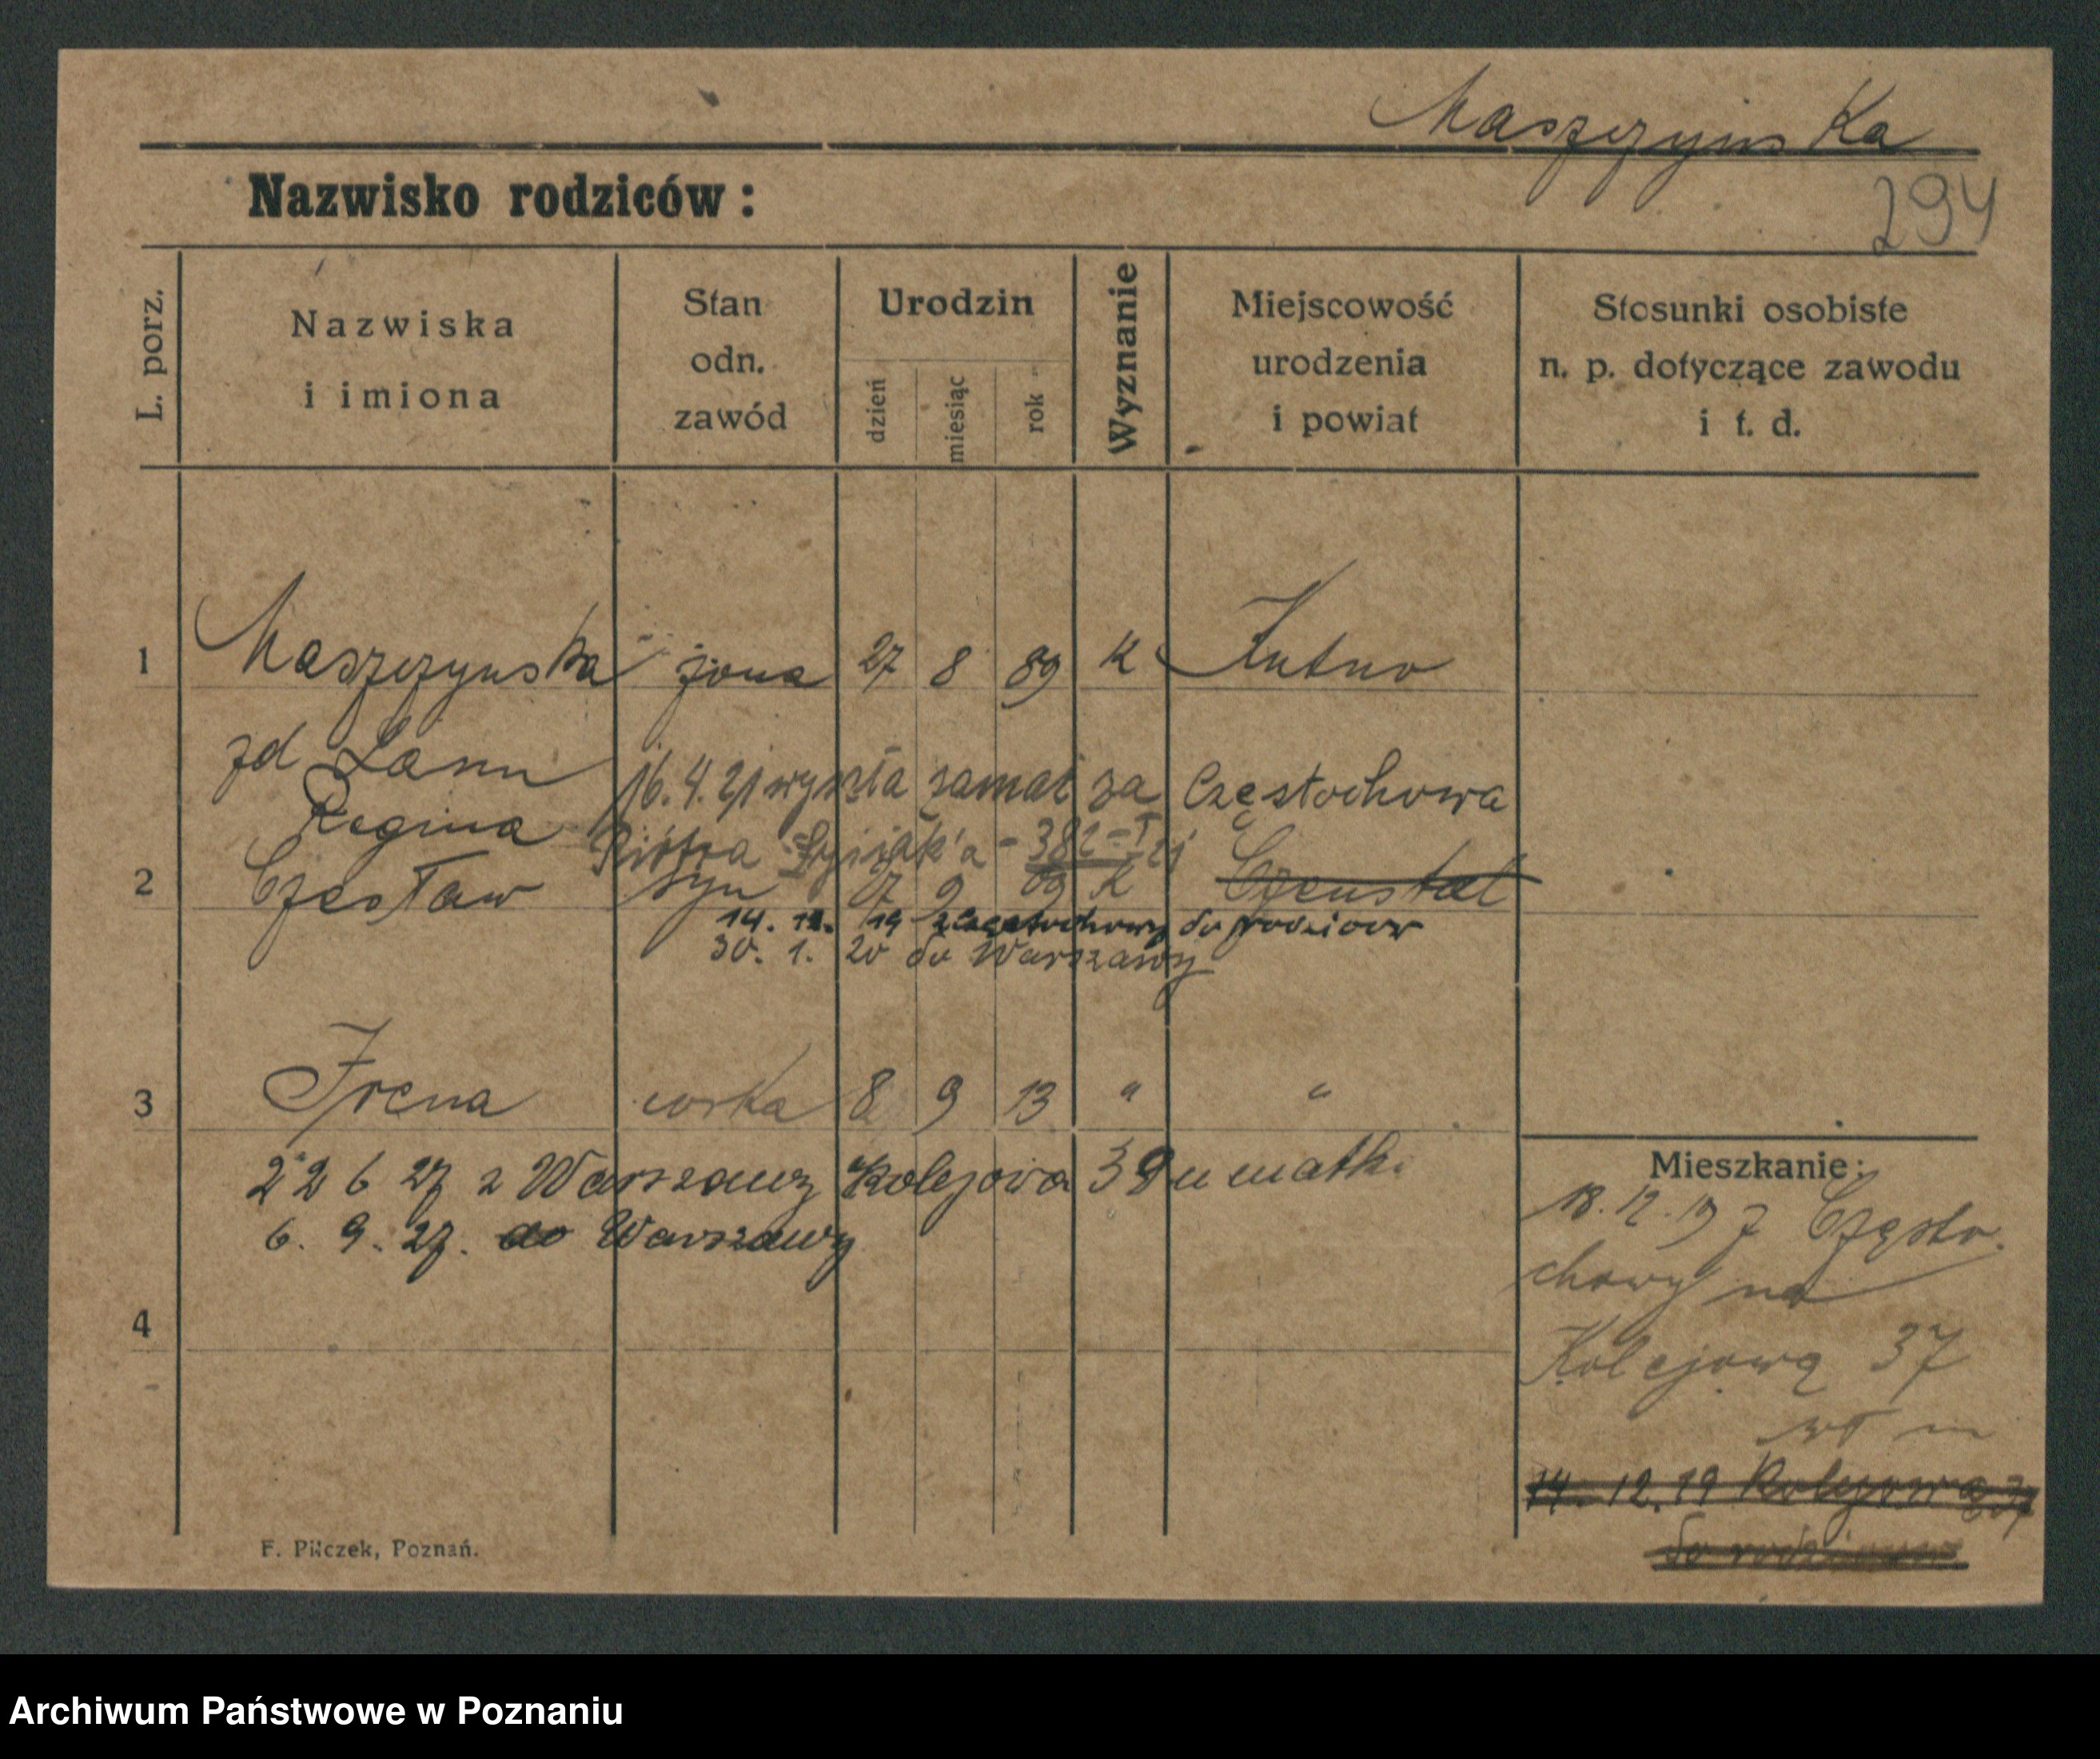 Maszczynska
294
Nazwisko rodziców:
L. porz.
Nazwiska
i imiona
Stan
odn.
zawód
Urodzin
dzień
miesiąc
rok
Wyznanie
Miejscowość
urodzenia
i powiat
Stosunki osobiste
n. p. dotyczące zawodu
i t. d.
1 Maszczynska żona 27 8 89 K Kutno
zd Lamm
Regina
16.4.21 wyszła zamąż za
Piotra 382
Częstochowa
2 Czesław syn 17 9 09 K
14. 12. 19 z Częstochowy do rodziców
30. 1. 20 do Warszawy
3 Irena corka 8 9 13 " "
22 6 27 z Warszawy Kolejowa 39 u matki
6. 9. 27. do Warszawy
4
Mieszkanie:
18.12.19 z Często-
chowy na
Kolejową 37
14. 12. 19 Kolejowa 37
do rodziców
F. Pilczek, Poznań.
Archiwum Państwowe w Poznaniu